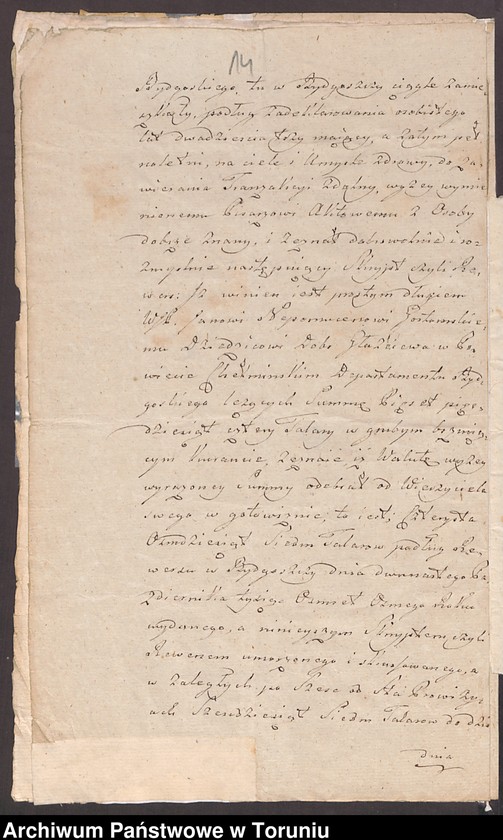 14
Bydgoskiego, tu w Bydgoszczy ciągle zamie
szkały, podług zadeklarowania osobistego
lat dwadzieścia trzy mający, a zatym peł
noletni, na ciele i Umyśle zdrowy, do za
wierania Tranzakcyi zdatny, wyżey wymie
nionemu Pisarzowi Aktowemu z Osoby
dobrze znany, i zeznał dobrowolnie i ro
zmyślnie następuiący Skrypt czyli Re
wers: Iż winien iest prostym długiem
WJP. Janowi Nepomucenowi
mu Dziedzicowi Dobr w Po
wiecie Chełminskim Departamentu Byd
goskiego leżących Summę Pięset pięc
dziesiąt cztery Talary w grubym brzmią
cym kurancie, zeznaie, iż Walutę wyżey
wyrażoney summy odebrał od Wierzyciela
swego w gotowiznie, to iest; Czterysta
Ośmdziesiąt Siedm Talarow podług Re
wersu w Bydgoszczy dnia dwunastego Pa
zdziernika tysiąc Osmset Osmego Roku
wydanego, a ninieyszym Skryptem czyli
Rewersem umorzonego i skassowanego, a
w zaległych po Szesc od Sta Prowizy
ach Szescdziesiąt Siedm Talarow do dziś
dnia
Archiwum Państwowe w Toruniu